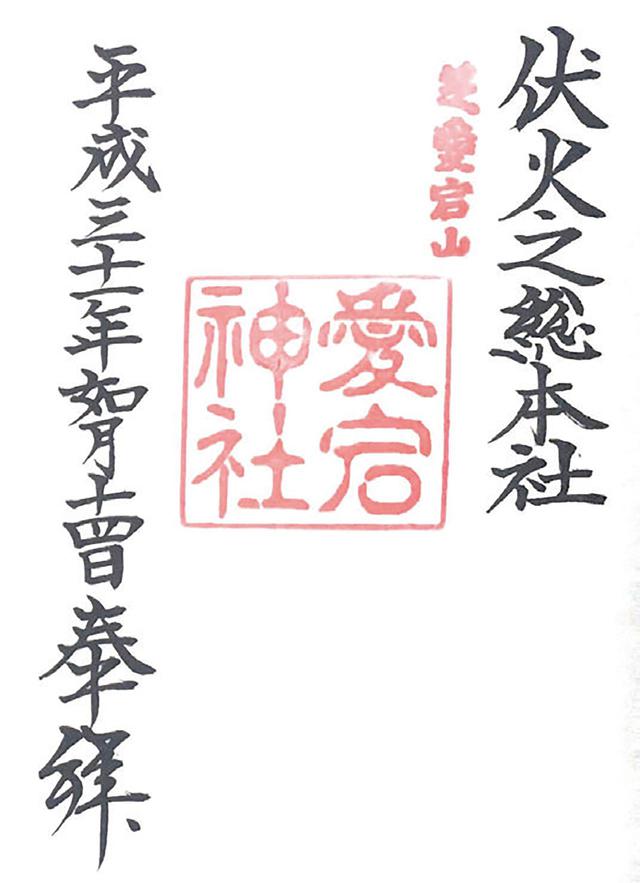 伏火之総本社
芝愛宕山
愛宕
神社
平成三十一年如月十四日奉拝